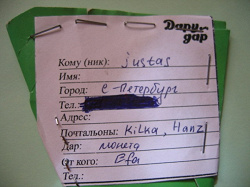 Дари
дар
Кому (ник): justas
Имя:
Город: С-Петербург
Тел.:
Адрес:
Почтальоны: Kilka, Hanz
Дар: монета
От кого: Efa
Тел.: